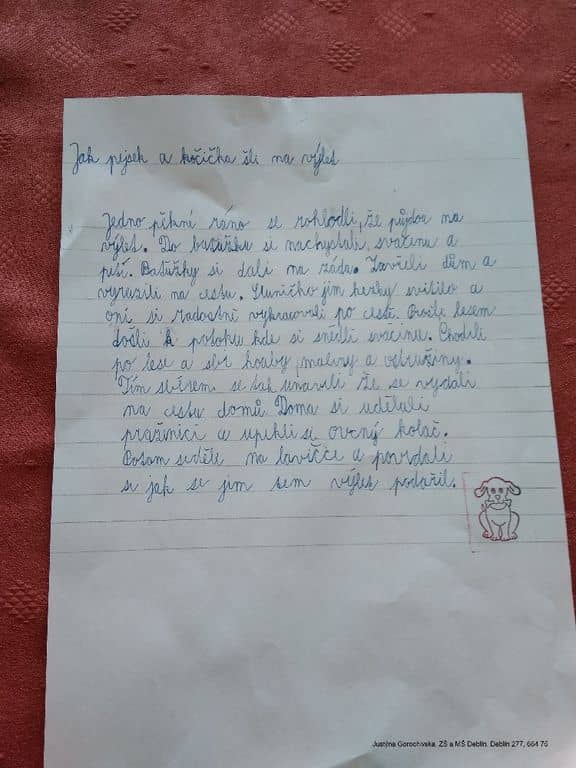 Jak pejsek a kočička šli na výlet
Jedno pěkní ráno se rohlodli, že půjdou na
výlet. Do batůžku si nachystali svačinu a
pití. Batůžky si dali na záda. Zavřeli dům a
vyrazili na cestu. Sluníčko jim hezky svítilo a
oni si radostně vykračovali po cestě. Prošli lesem
došli k potoku kde si snědli svačinu. Chodili
po lese a sbír houby, maliny a ostružiny.
Tím sběrem se tak unavili že se vydali
na cestu domů. Doma si udělali
praženici a upekli si ovcný koláč.
Potom seděle na lavičče a povídali
si jak se jim tem výlet podařil.
Justýna Gorochivska, ZŠ a MŠ Deblín, Deblín 277, 664 75